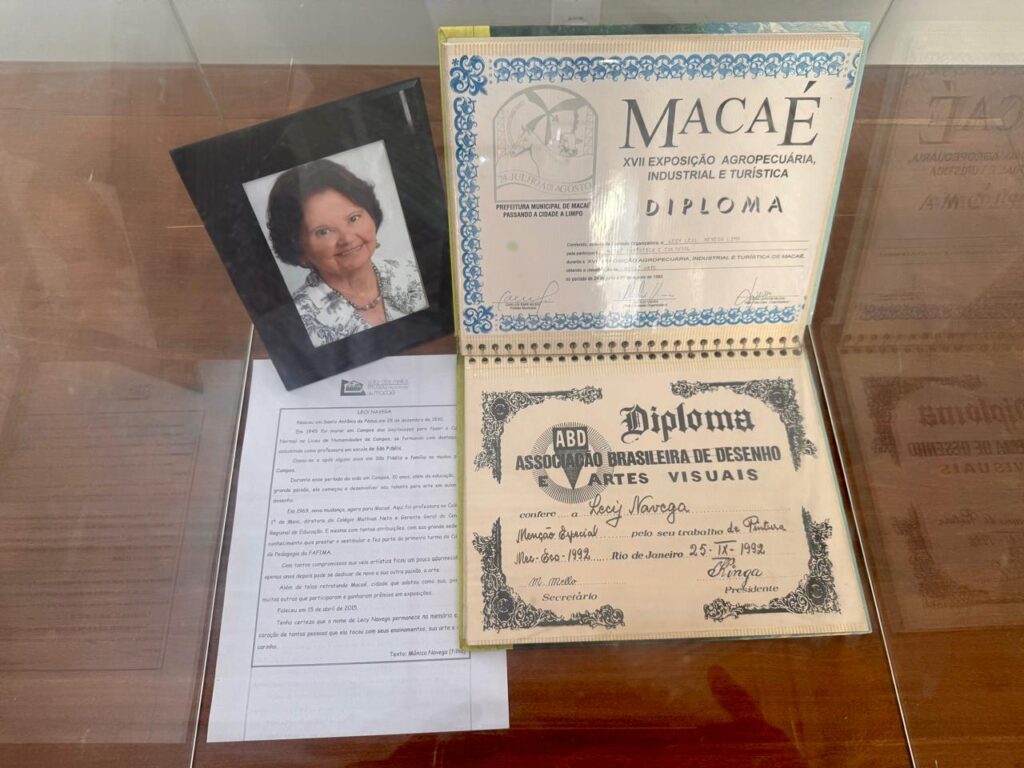 MACAÉ
XVII EXPOSIÇÃO AGROPECUÁRIA,
INDUSTRIAL E TURÍSTICA
DIPLOMA
24 JULHO A 01 AGOSTO
PREFEITURA MUNICIPAL DE MACAÉ
PASSANDO A CIDADE A LIMPO
Conferido, pela Comissão Organizadora a LECY LEAL NAVEGA
pela participação
durante a XVII EXPOSIÇÃO AGROPECUÁRIA, INDUSTRIAL E TURÍSTICA DE MACAÉ,
obtendo a classificação
no período de 24 de julho a 01 de agosto de
Diploma
ABD
ASSOCIAÇÃO BRASILEIRA DE DESENHO
E ARTES VISUAIS
confere a Lecy Navega
Menção Especial pelo seu trabalho de Pintura
Mes-Eco-1992 Rio de Janeiro 25-IX-1992
M. Mello
Secretário Presidente
museu
de macaé
LECY NAVEGA
Nasceu em Santo Antônio de Pádua em 25 de dezembro de
Em 1945 foi morar em Campos dos Goytacazes para fazer o
Normal no Liceu de Humanidades de Campos, se formando com
assumindo como professora em escola de São Fidélis.
Casou-se e após alguns anos em São Fidélis a família se mudou
Campos.
Durante esse período da vida em Campos, 10 anos, além da educação,
grande paixão, ela começou a desenvolver seu talento para arte em aulas
desenho.
Em 1969, nova mudança, agora para Macaé. Aqui foi professora no
1º de Maio, diretora do Colégio Matias Neto e Gerente Geral do
Regional de Educação. E mesmo com tantas atribuições, com sua grande sede
conhecimento quis prestar o vestibular e fez parte da primeira turma do
de Pedagogia da FAFIMA.
Com tantos compromissos sua veia artística ficou um pouco adormecida
apenas anos depois pode se dedicar de novo a sua outra paixão, a arte.
Além de telas retratando Macaé, cidade que adotou como sua,
muitos outros que participaram e ganharam prêmios em exposições.
Faleceu em 15 de abril de 2015.
Tenho certeza que o nome de Lecy Navega permanece na memória e
coração de tantas pessoas que ela tocou com seus ensinamentos, sua arte e
carinho.
Texto: Mônica Navega (filha)